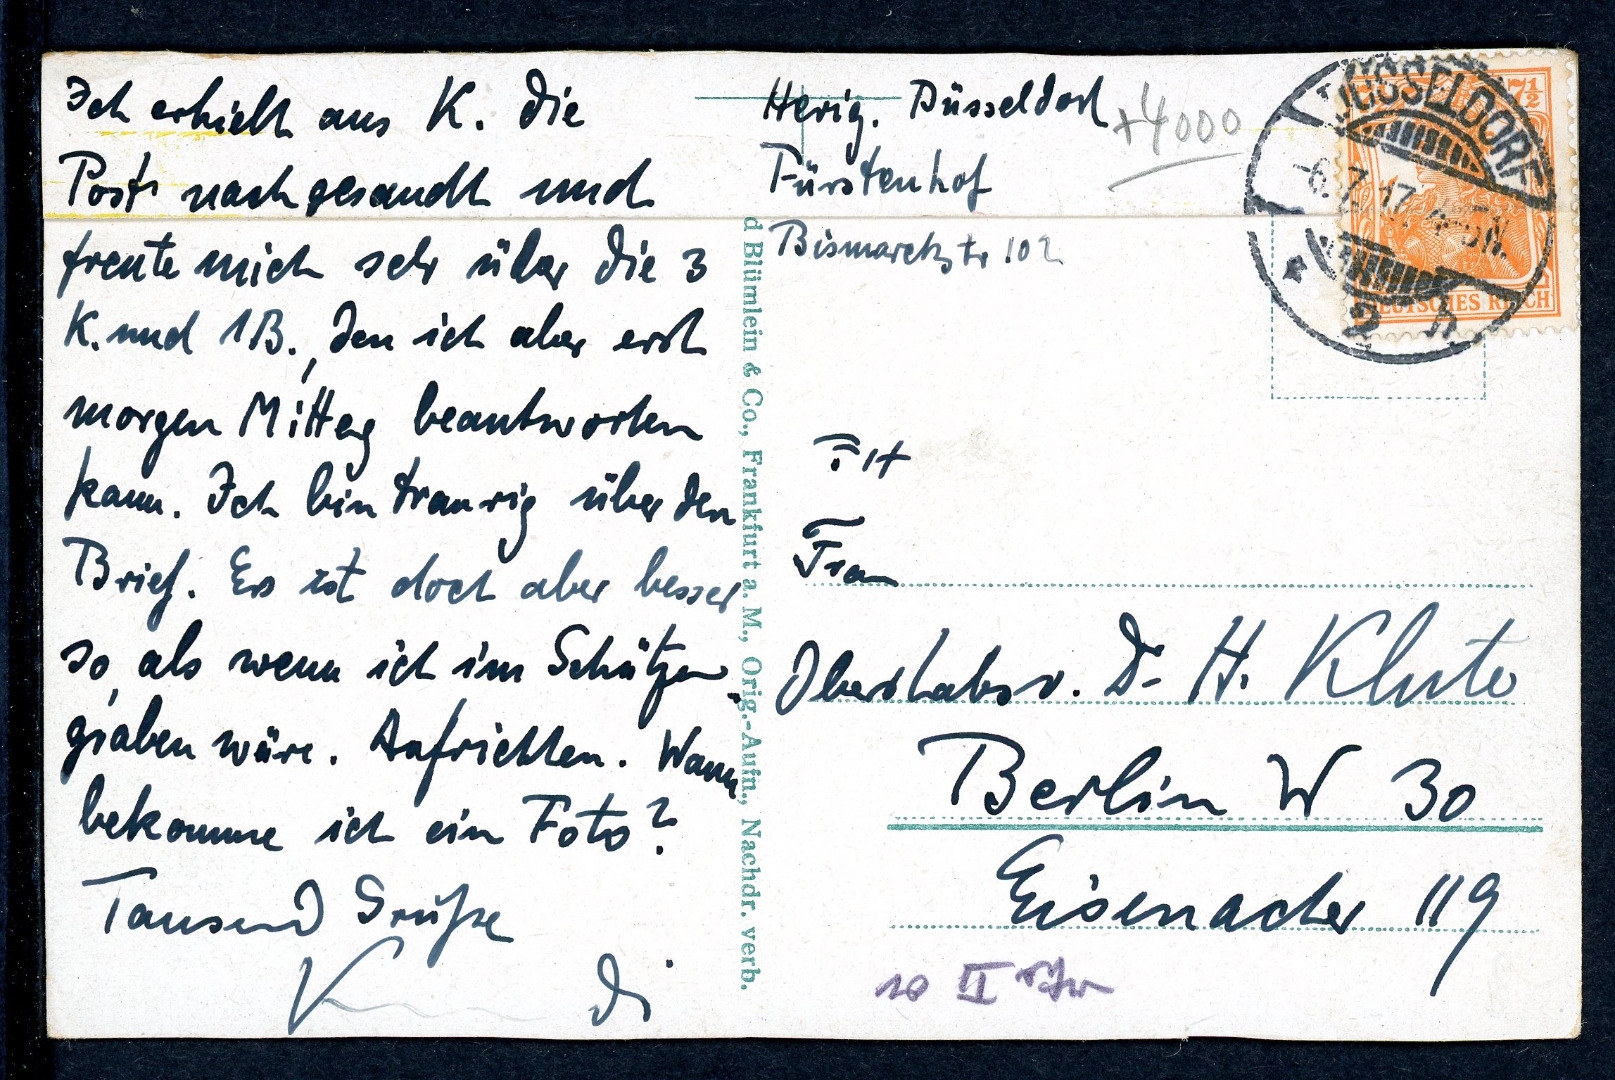 Ich erhielt aus K. die
Post nachgesandt und
freute mich sehr über die 3
K. und 1 B., den ich aber erst
morgen Mittag beantworten
kann. Ich bin traurig über den
Brief. Es ist doch aber besser
so, als wenn ich im Schützen
graben wäre. Aufrichten. Wann
bekomme ich ein Foto?
Tausend Grüße
d Blümlein & Co., Frankfurt a. M., Orig.-Aufn., Nachdr. verb.
Herig. Düsseldorf
Fürstenhof
Bismarckstr 102
+4000
DÜSSELDORF
-6.7.17. 4-5N.
* 2 h
7½
DEUTSCHES REICH
Frau
Oberstabsv. Dr H. Klute
Berlin W 30
Eisenacher 119